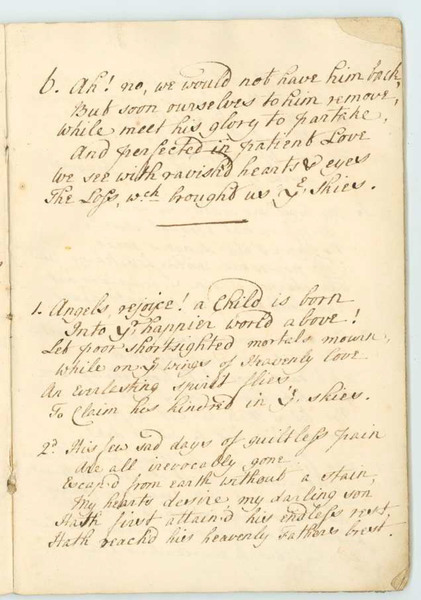 6. Ah! no, we would not have him back,
But soon ourselves to him remove,
While meet his glory to partake,
And perfected in patient Love
We see with ravish'd hearts & eyes
The Loss, wch brought us ye skies.
1. Angels, rejoice! a Child is born
Into yr happier world above!
Let poor shortsighted mortals mourn,
While on ye wings of Heavenly love
An Everlasting spirit flies
To Claim his kindred in ye skies.
2d. His few sad days of guiltless pain
Are all irrevocably gone
Escap'd from earth without a stain,
My hearts desire my darling son
Hath first attain'd his endless rest,
Hath reach'd his heavenly Fathers brest.